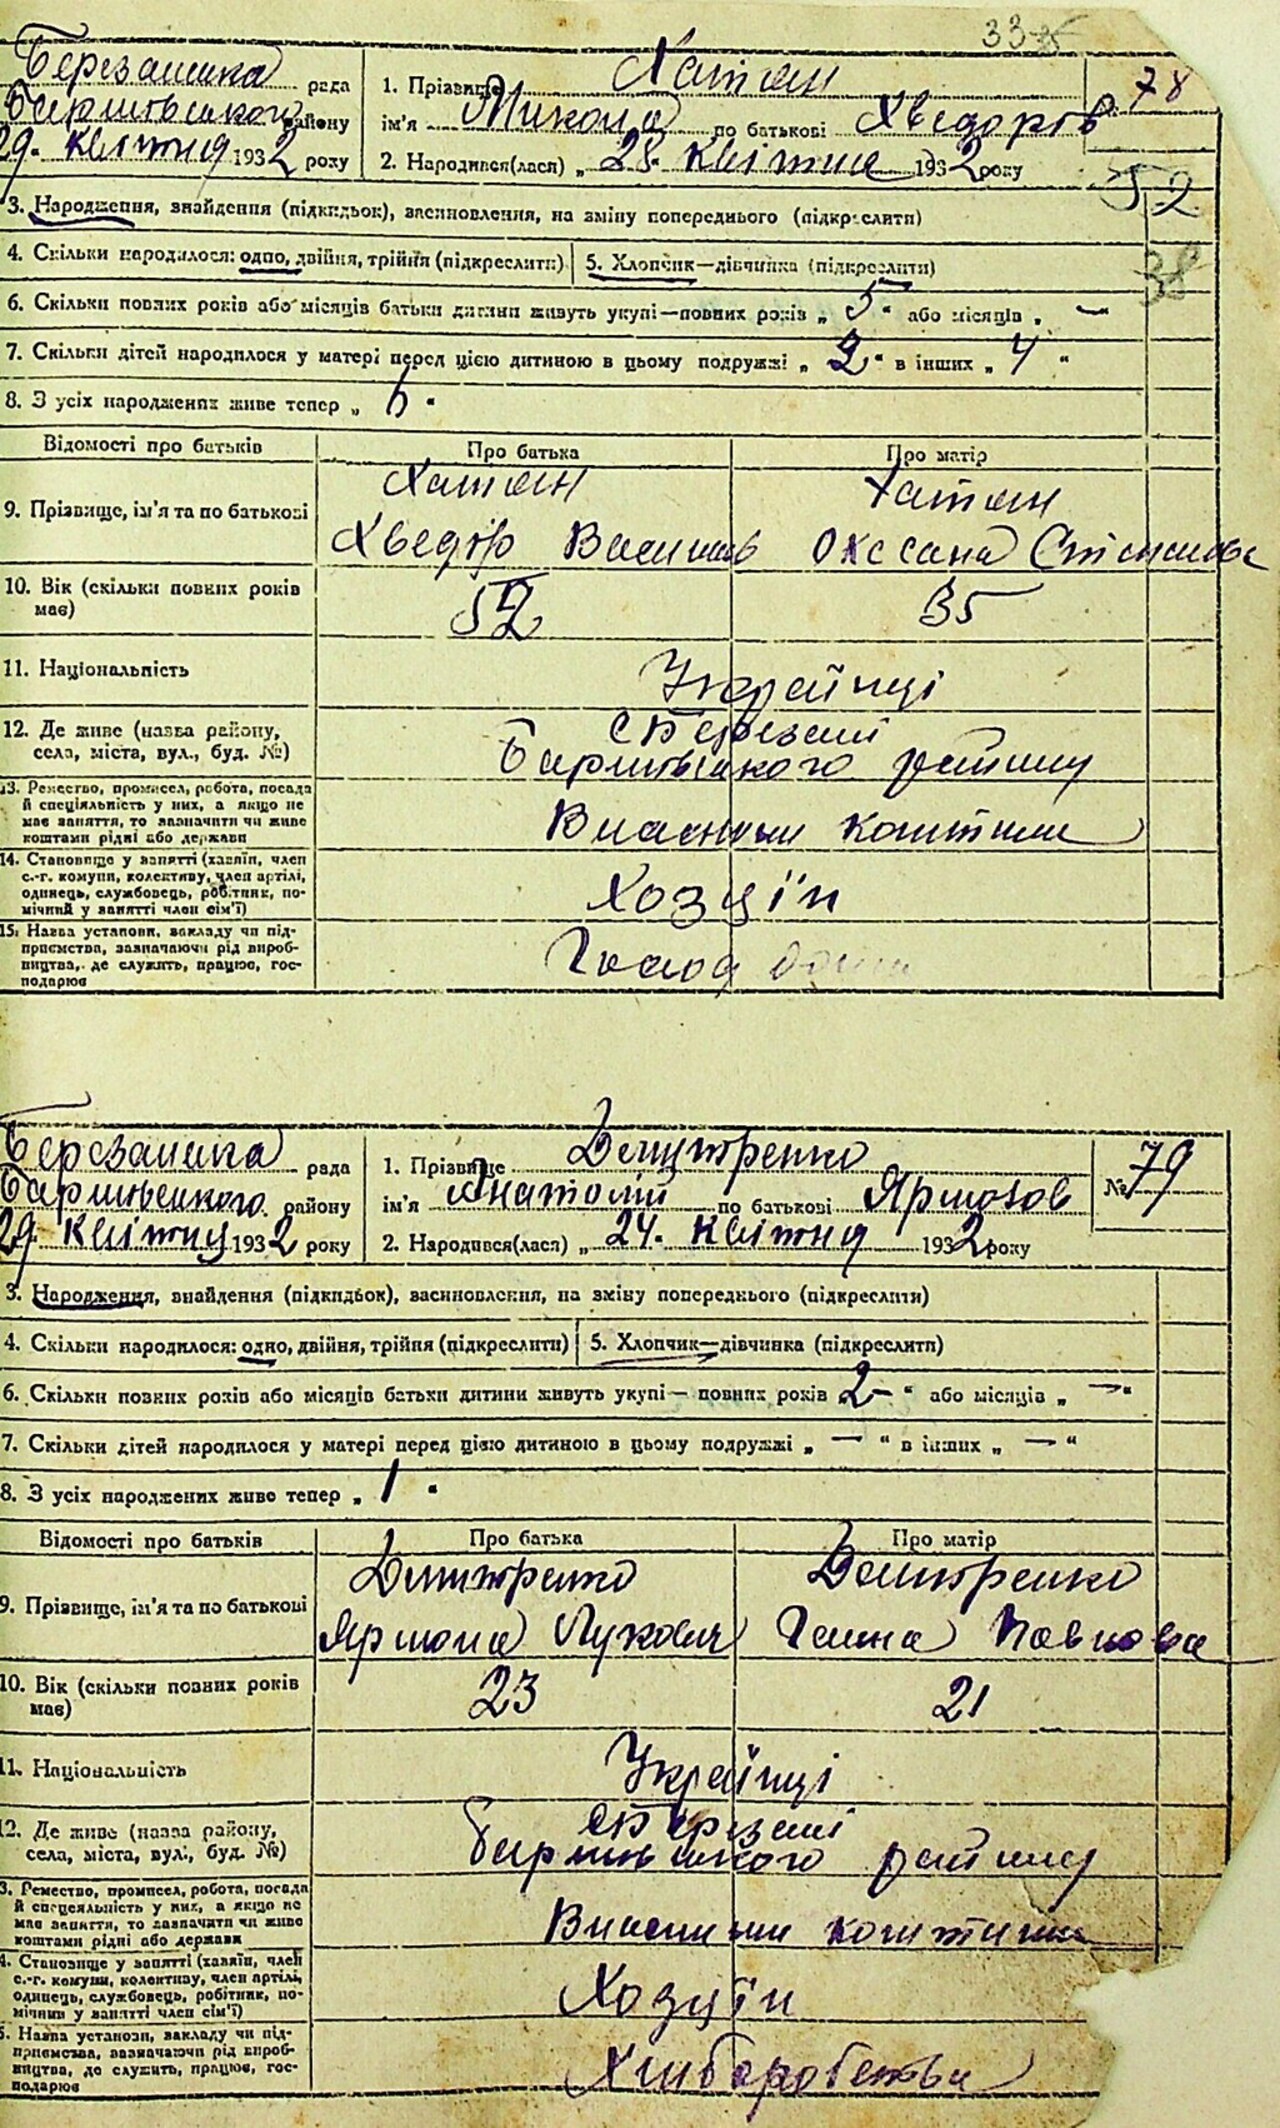 33 35
Березанська рада
Баришівського району
29. квітня 1932 року
1. Прізвище Хатян
ім'я Микола по батькові Хведорів
2. Народився(лася) „ 28. квітня 1932 року
№ 78
52
38
3. Народження, знайдення (підкидьок), засиновлення, на зміну попереднього (підкреслити)
4. Скільки народилося: одно, двійня, трійня (підкреслити)
5. Хлопчик—дівчинка (підкреслити)
6. Скільки повних років або місяців батьки дитини живуть укупі—повних років „ 5 “ або місяців „ —“
7. Скільки дітей народилося у матері перед цією дитиною в цьому подружжі „ 2 “ в інших „ 4 “
8. З усіх народжених живе тепер „ 6 “
Відомості про батьків
Про батька
Про матір
9. Прізвище, ім'я та по батькові
Хатян
Хатян
Хведір
Оксана
10. Вік (скільки повних років
має)
52
35
11. Національність
Українці
12. Де живе (назва району,
села, міста, вул., буд. №)
с Березані
Баришівського району
13. Ремество, промисел, робота, посада
й спеціяльність у них, а якщо не
має заняття, то зазначити чи живе
коштами рідні або держави
Власними коштами
14. Становище у занятті (хазяїн, член
с.-г. комуни, колективу, член артілі,
одинець, службовець, робітник, по-
мічний у занятті член сім'ї)
Хозяїн
15. Назва установи, закладу чи під-
приємства, зазначаючи рід вироб-
ництва, де служить, працює, гос-
подарює
Березанська рада
Баришівського району
29. квітня 1932 року
1. Прізвище Демитренко
ім'я Анатолій по батькові Ярмолов
2. Народився(лася) „ 24. квітня 1932 року
№ 79
3. Народження, знайдення (підкидьок), засиновлення, на зміну попереднього (підкреслити)
4. Скільки народилося: одно, двійня, трійня (підкреслити)
5. Хлопчик—дівчинка (підкреслити)
6. Скільки повних років або місяців батьки дитини живуть укупі— повних років 2— “ або місяців „ —“
7. Скільки дітей народилося у матері перед цією дитиною в цьому подружжі „ — “ в інших „ — “
8. З усіх народжених живе тепер „ 1 “
Відомості про батьків
Про батька
Про матір
9. Прізвище, ім'я та по батькові
Демитренко
Демитренко
Ярмола Лукович
Ганна Павлова
10. Вік (скільки повних років
має)
23
21
11. Національність
Українці
12. Де живе (назва району,
села, міста, вул., буд. №)
с Березані
Баришівського району
3. Ремество, промисел, робота, посада
й спеціяльність у них, а якщо не
має заняття, то зазначити чи живе
коштами рідні або держави
Власними коштами
4. Становище у занятті (хазяїн, член
с.-г. комуни, колективу, член артілі,
одинець, службовець, робітник, по-
мічний у занятті член сім'ї)
Хозяїн
5. Назва установи, закладу чи під-
приємства, зазначаючи рід вироб-
ництва, де служить, працює, гос-
подарює
Хліборобства